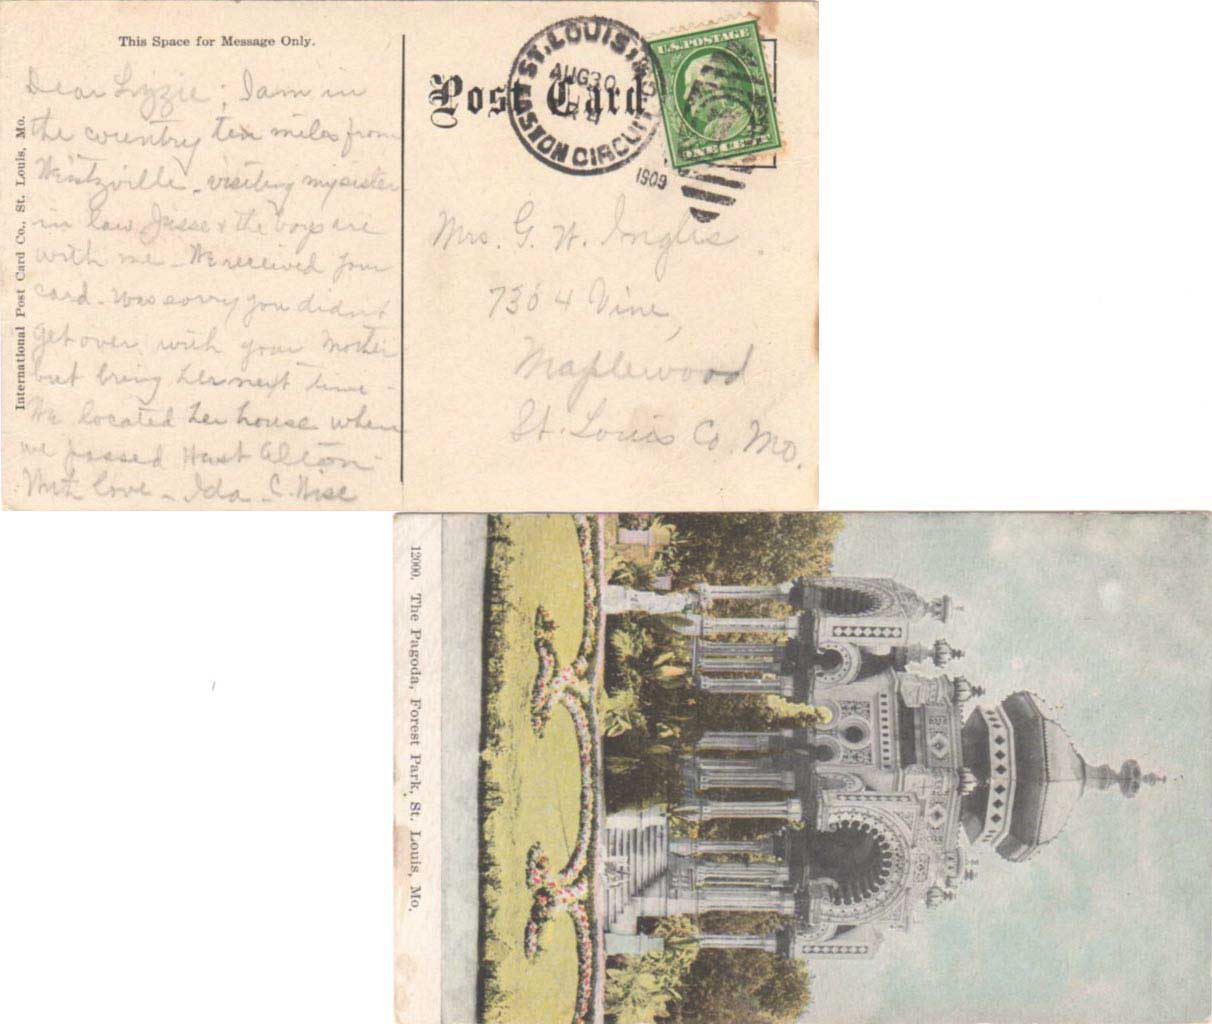 This Space for Message Only.
Post Card
ST. LOUIS, MO.
AUG 30
1909
CIRCUIT
U.S. POSTAGE
ONE CENT
International Post Card Co., St. Louis, Mo.
Dear Lizzie; I am in
the country ten miles from
Wintzville - visiting my sister
in law Jesse & the boys are
with me - We received your
card - was sorry you didn't
get over with your Mother
but bring her next time -
We located her house when
we passed East Alton -
With love - Ida C. Wise
Mrs. G. W. Inglis
7304 Vine,
Maplewood
St. Louis Co. Mo.
12000. The Pagoda, Forest Park, St. Louis, Mo.